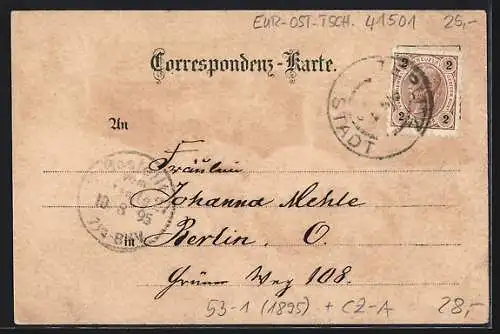 EUR-OST-TSCH. 41501 25,-
Correspondenz-Karte.
2 2
2 2
STADT
An
Fräulein
Johanna Mehle
in Berlin, O.
Grüner Weg 108.
10 8 95
53-1 (1895) + CZ-A 28,-